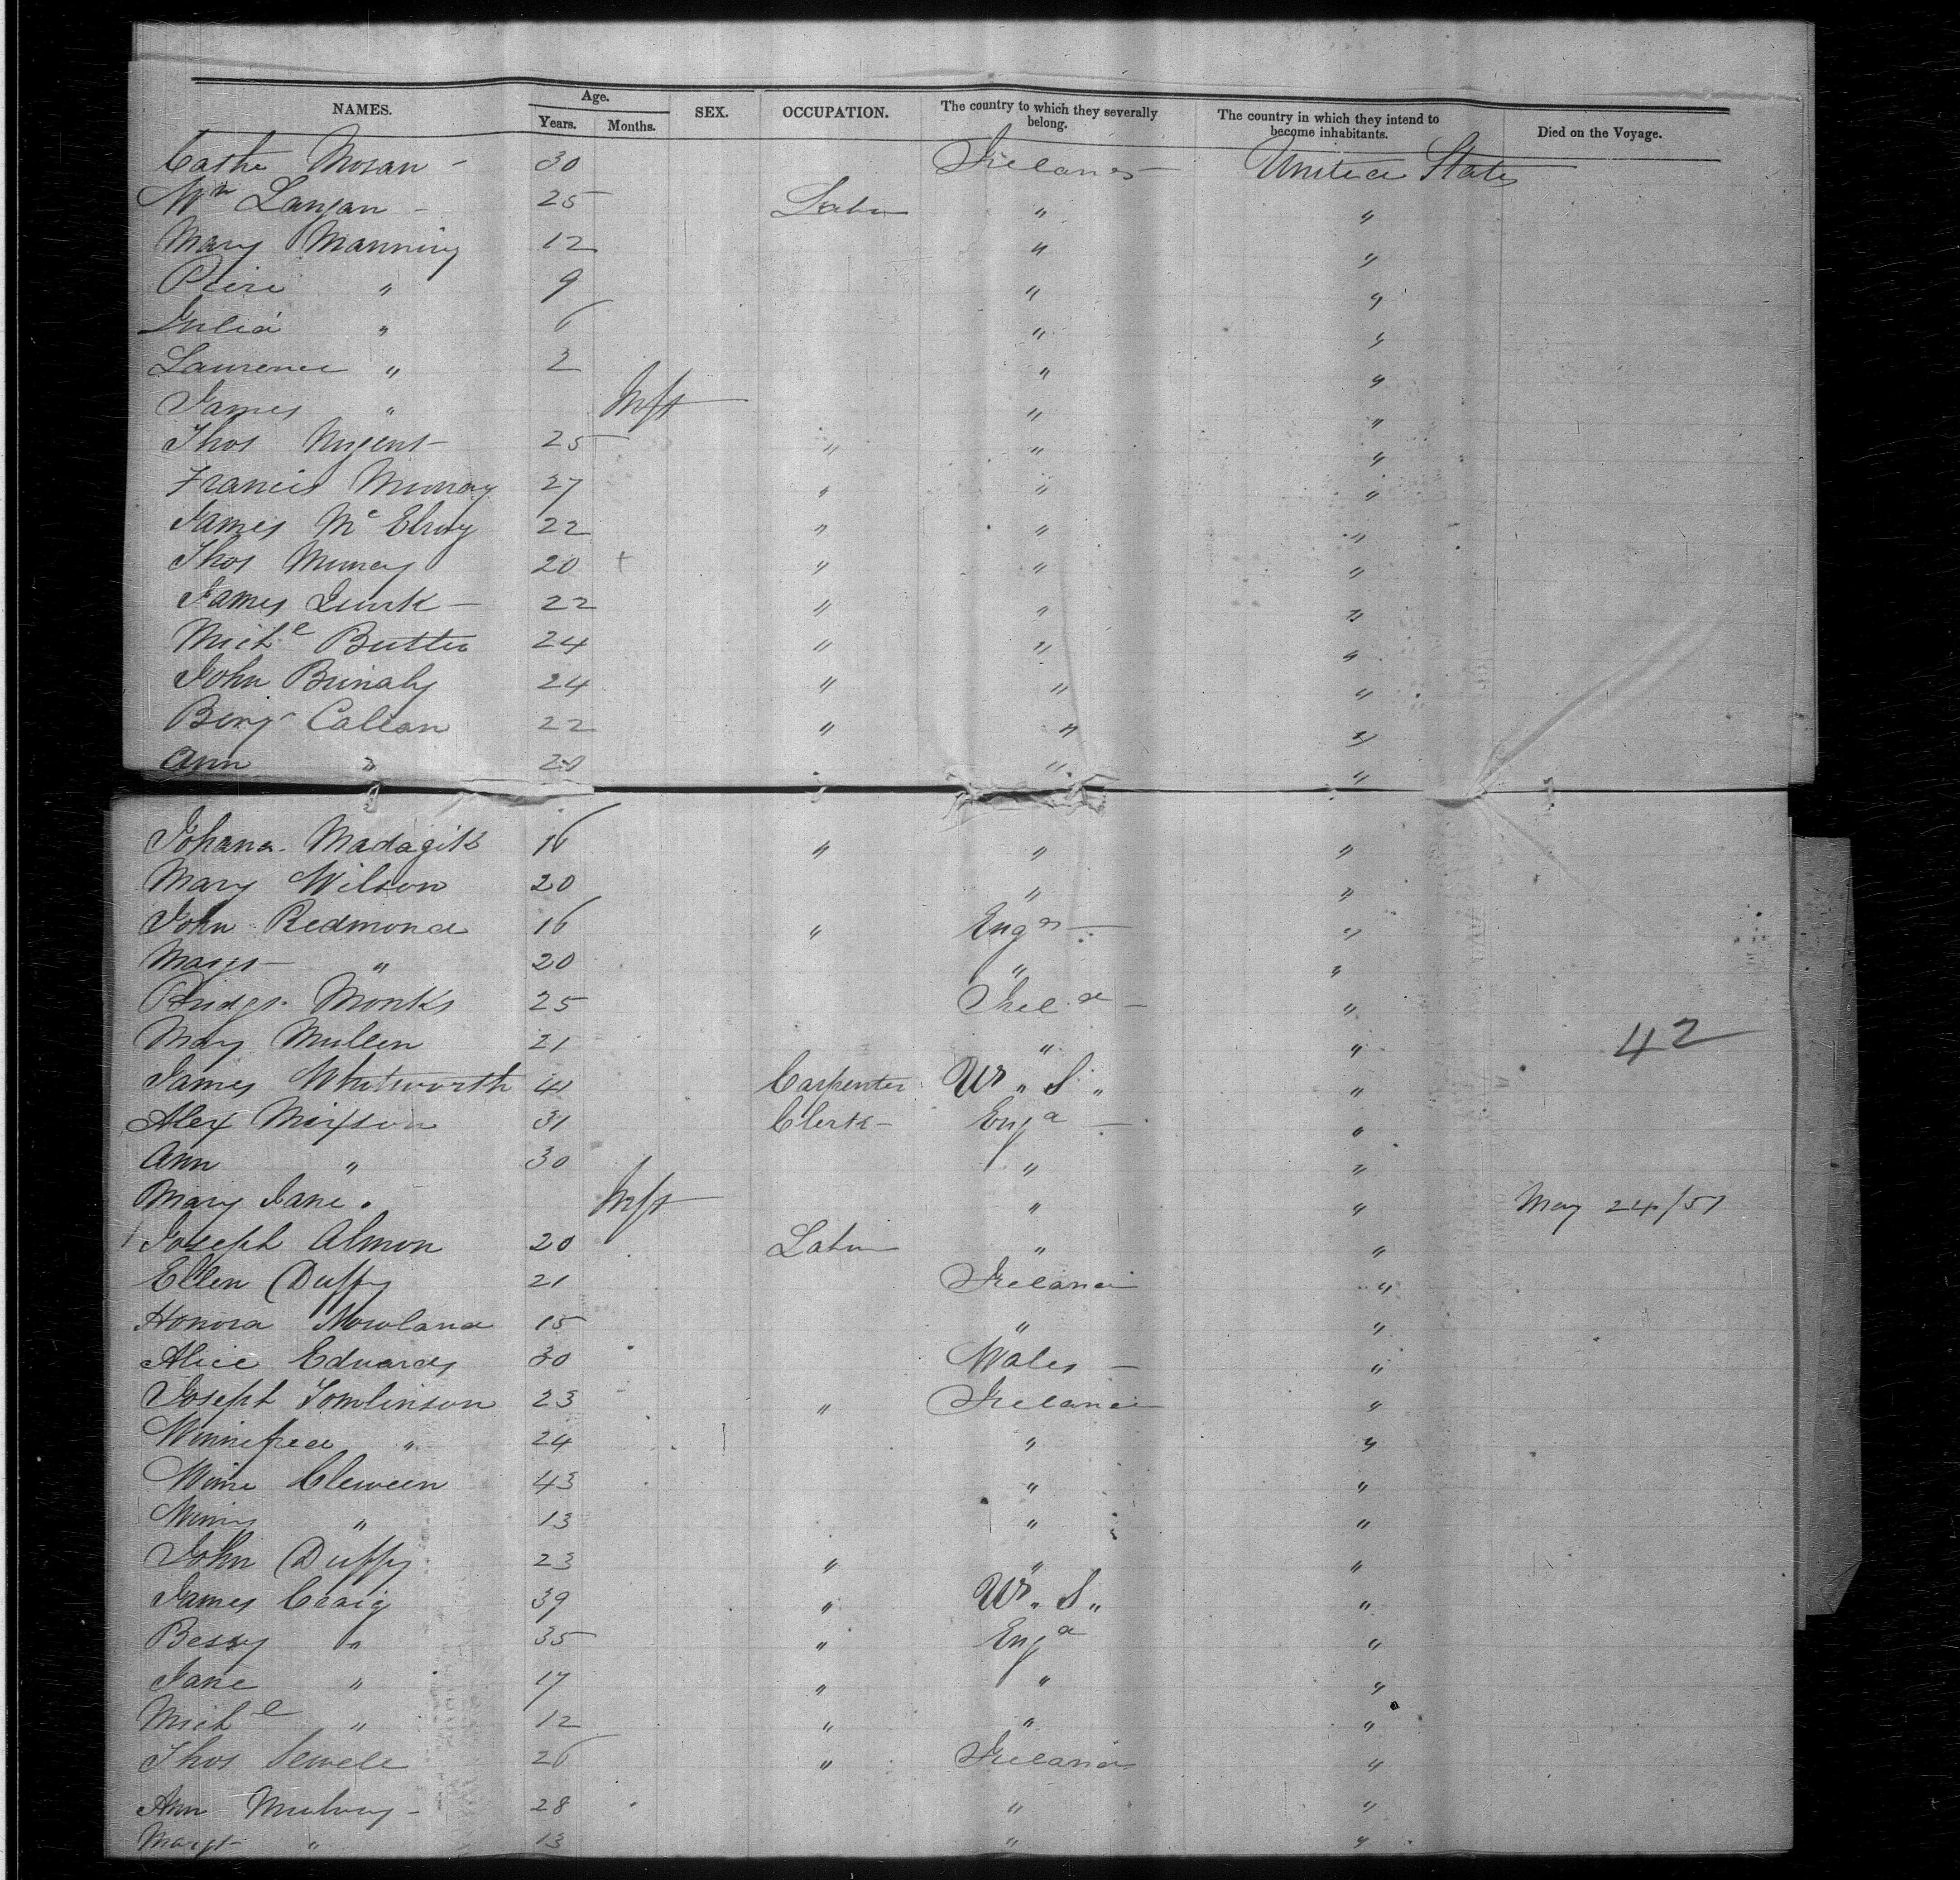 NAMES. Age. Years. Months. SEX. OCCUPATION. The country to which they severally belong. The country in which they intend to become inhabitants. Died on the Voyage.
Cathe Moran - 30 Ireland United States
Wm Langan - 25 Labr " "
Mary Manning 12 " "
" 9 " "
Julia " 6 " "
Laurence " 2 " "
James " Inft " "
Thos Nugent 25 " " "
Francis Murray 27 " " "
James Mc Elroy 22 " " "
Thos Murray 20 + " " "
James Quirk - 22 " " "
Michl Butler 24 " " "
John 24 " " "
Benj Callan 22 " " "
Ann " 20 " "
Johana 16 " " "
Mary Wilson 20 " "
John Redmond 16 " Engd "
Margt " 20 " "
Bridgt Monks 25 Ireld "
Mary Mullen 21 " "
42
James Whitworth 41 Carpenter U " S " "
Alex Mixson 31 Clerk - Engd "
Ann " 30 " "
Mary Jane " Inft " " May 24/51
Joseph Almon 20 Labr " "
Ellen Duffy 21 Ireland "
Honora Nowland 15 " "
Alice Edwards 30 Wales "
Joseph Tomlinson 23 " Ireland "
Winnifred " 24 " "
Cleween 43 " "
Winny " 13 " "
John Duffy 23 " " "
James Craig 39 " U " S " "
Bessy " 35 " Engd "
Jane " 17 " " "
Michl " 12 " " "
Thos Sewell 26 " Ireland "
Ann Mulvey - 28 " "
Margt " 13 " "